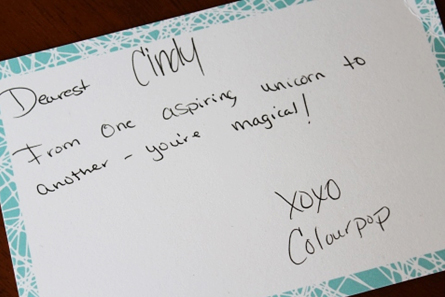 Dearest Cindy
From one aspiring unicorn to
another - you're magical!
XOXO
Colourpop